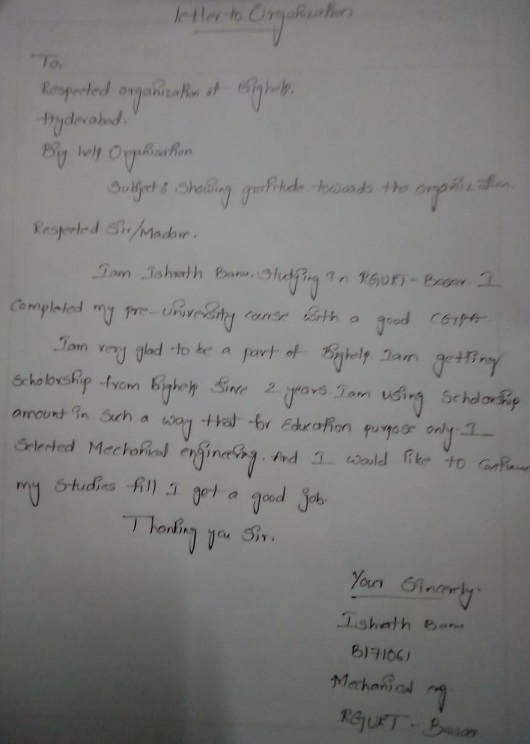 letter to Organization
To,
Respected organization of Bighelp.
Hyderabad.
Big help Organisation
Subject : Showing gratitude towards the organization.
Respected Sir/Madam.
I am Ishrath Banu, Studying in RGUKT - Basar. I
Completed my pre-University course with a good CGPA.
I am very glad to be a part of Bighelp I am getting
Scholarship from Bighelp Since 2 years. I am using Scholarship
amount in Such a way that for Education purpose only. I
Selected Mechanical engineering. And I would like to Continue
my Studies till I get a good job.
Thanking you Sir.
Your Sincerely.
Ishrath Banu
B171061
Mechanical eng.
RGUKT - Basar.